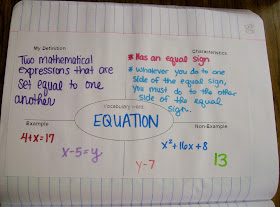 My Definition
Two mathematical
expressions that are
set equal to one
another
Characteristics
* Has an equal sign
* Whatever you do to one
side of the equal sign,
you must do to the other
side of the equal
sign.
Vocabulary Word
EQUATION
Example
4+x=17
x-5=y
Non-Example
x²+16x+8
y-7
13